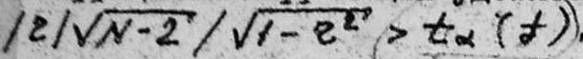 |r|√N-2 / √1-r² > tα(f)).